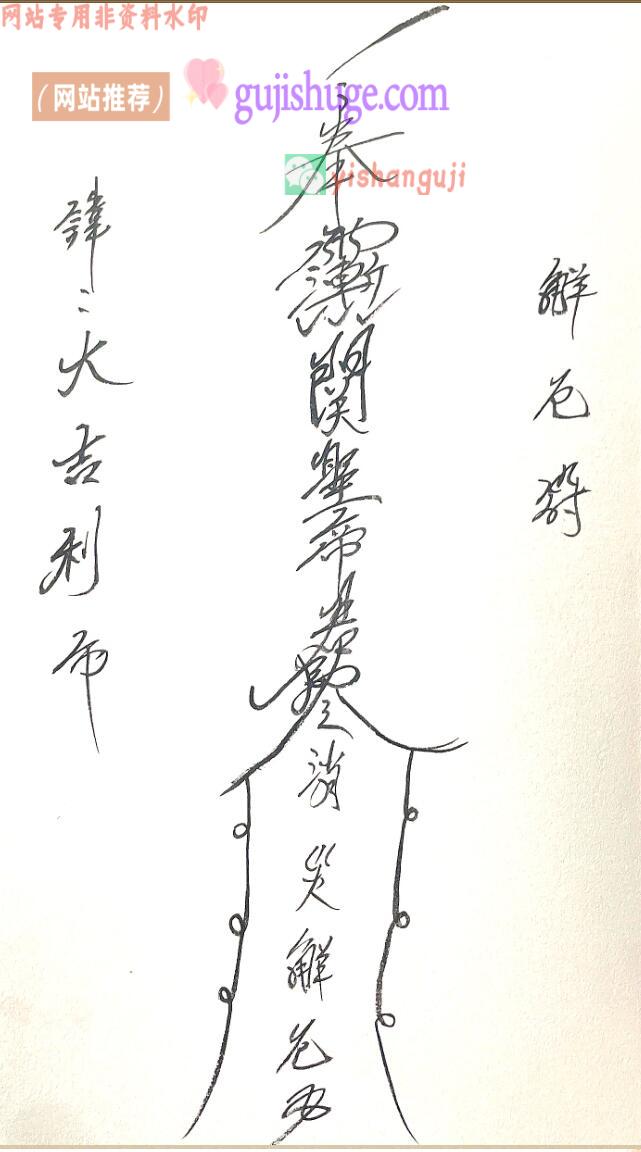 网站专用非资料水印
（网站推荐）
gujishuge.com
yishanguji
解厄符
奉關聖帝君消災解厄
大吉利市